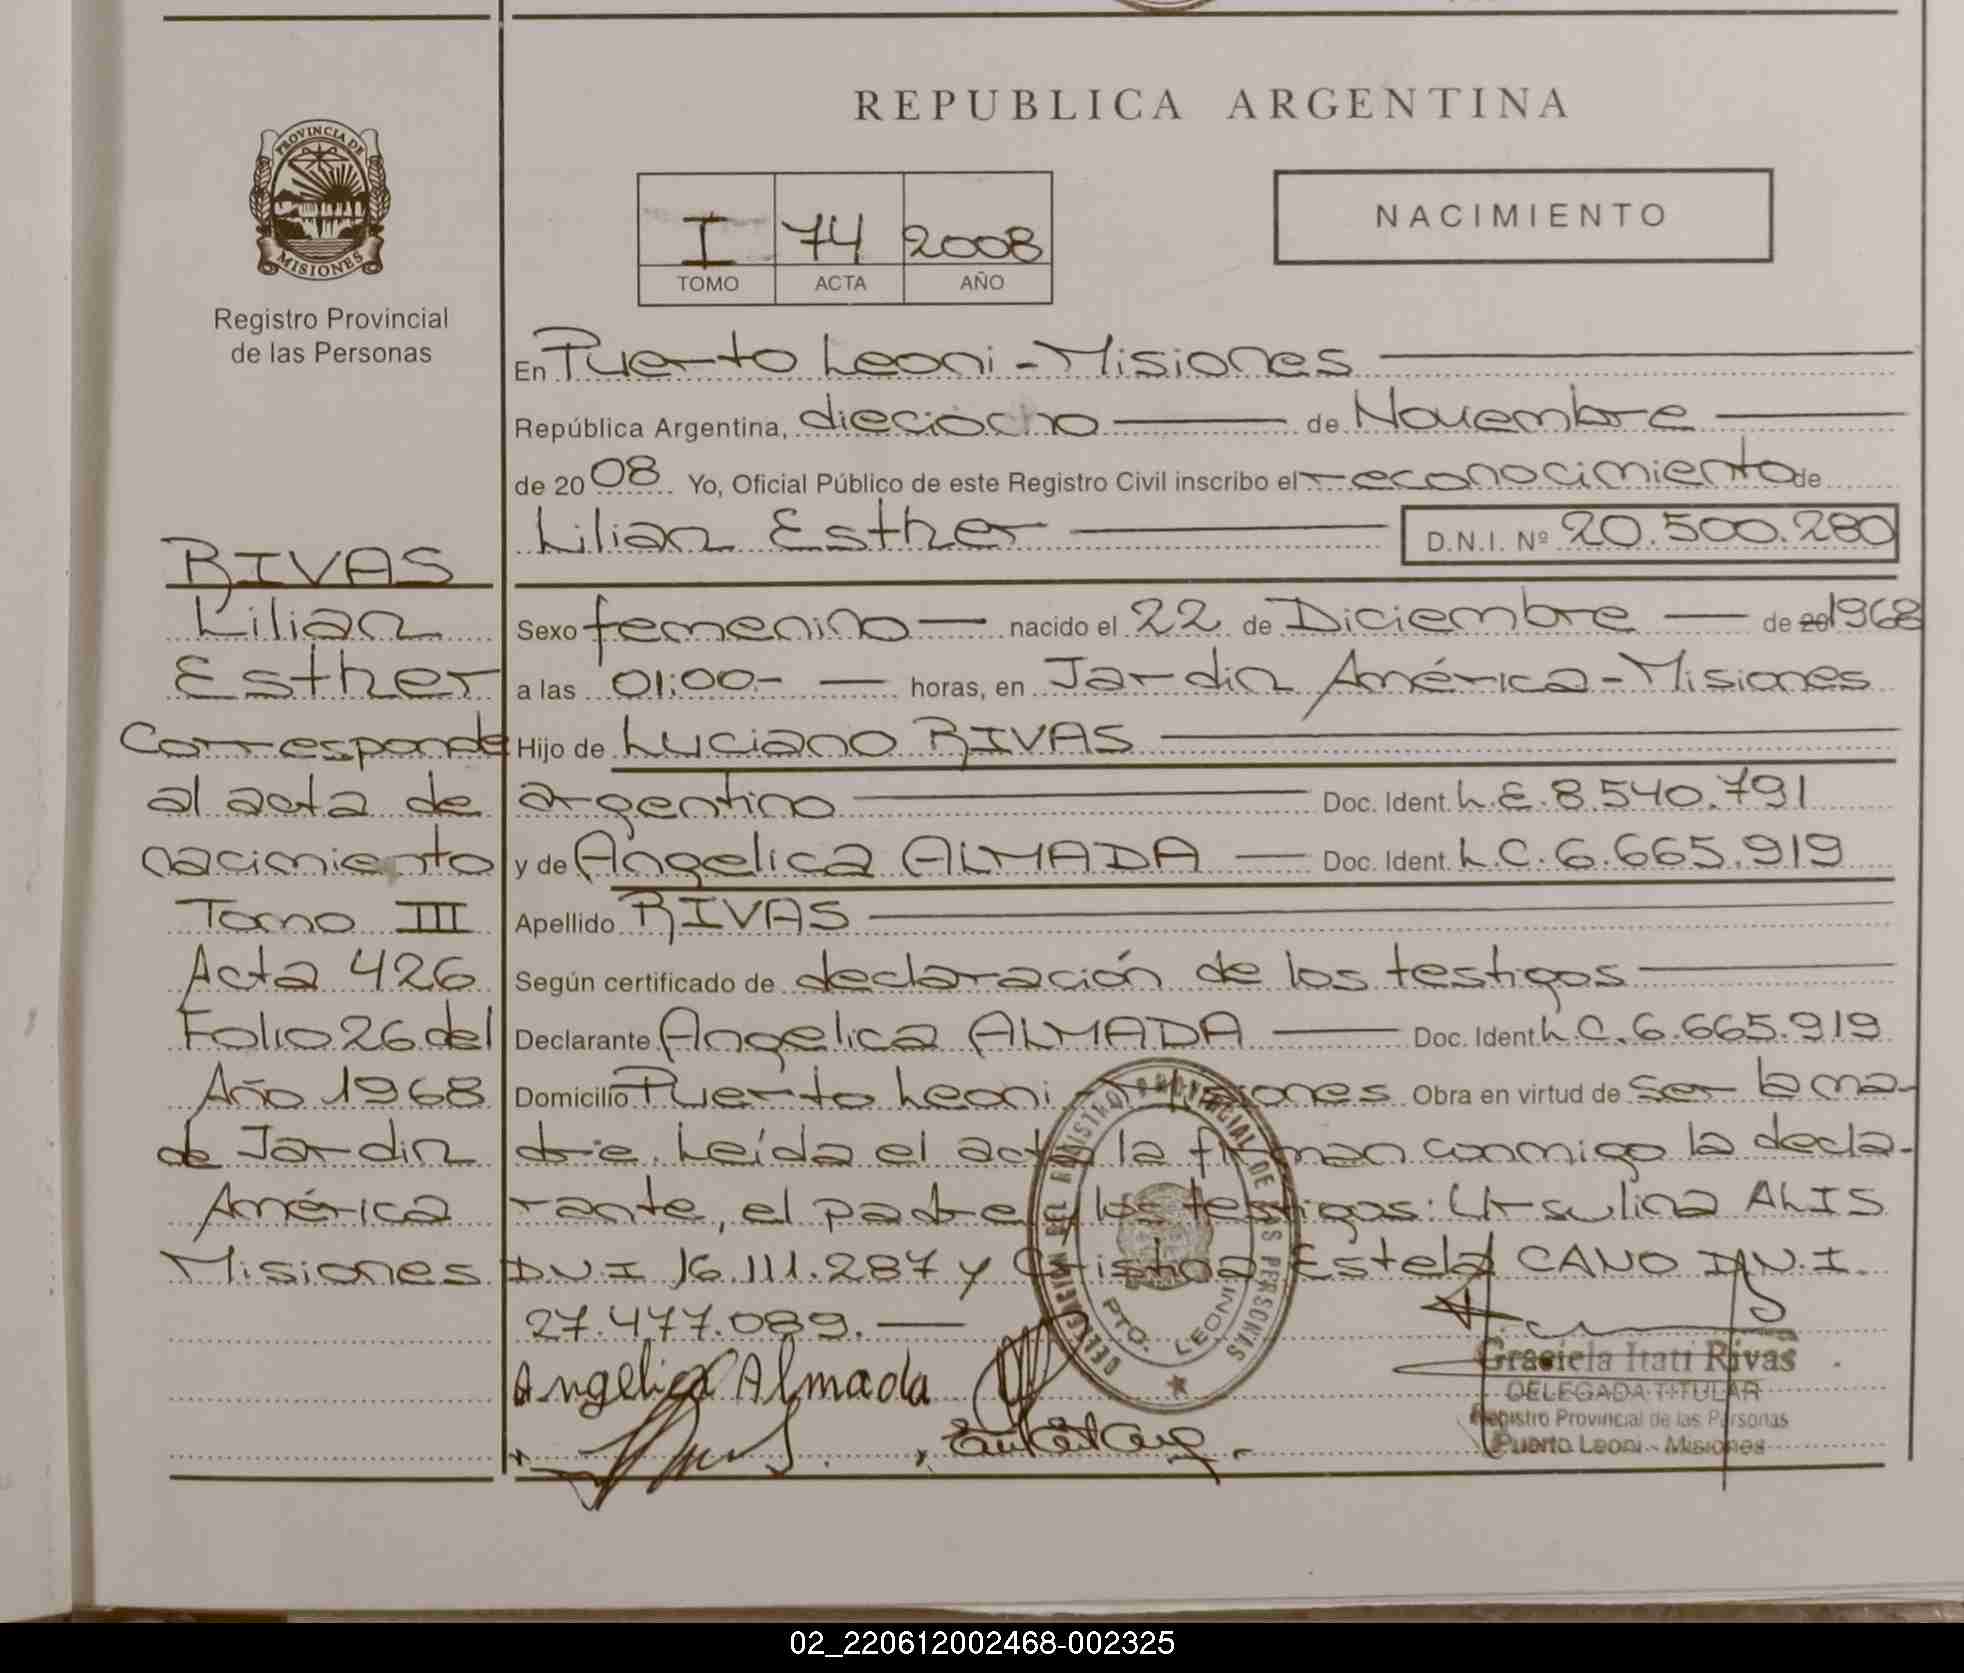 REPUBLICA ARGENTINA
PROVINCIA DE
MISIONES
Registro Provincial
de las Personas
I 74 2008
TOMO ACTA AÑO
NACIMIENTO
RIVAS
Lilian
Esther
Corresponde
al acta de
nacimiento
Tomo III
Acta 426
Folio 26 del
Año 1968
de Jardin
América
Misiones
En Puerto Leoni - Misiones
República Argentina, dieciocho de Noviembre
de 2008 Yo, Oficial Público de este Registro Civil inscribo el reconocimiento de
Lilian Esther D.N.I. Nº 20.500.280
Sexo femenino nacido el 22 de Diciembre de 20 1968
a las 01:00.- horas, en Jardin América - Misiones
Hijo de Luciano RIVAS
argentino Doc. Ident. L.E. 8.540.791
y de Angelica ALMADA Doc. Ident. L.C. 6.665.919
Apellido RIVAS
Según certificado de declaración de los testigos
Declarante Angelica ALMADA Doc. Ident L.C. 6.665.919
Domicilio Puerto Leoni - Misiones Obra en virtud de ser la ma-
dre. Leída el acta la firman conmigo la decla-
rante, el padre y los testigos: Ursulina ALIS
D.N.I 16.111.287 y Cristina Estela CANO D.N.I.
27.477.089.
Angelica Almada
DELEGACION DEL REGISTRO PROVINCIAL DE LAS PERSONAS
PTO. LEONI
Graciela Itati Rivas
DELEGADA TITULAR
Registro Provincial de las Personas
Puerto Leoni - Misiones
02_220612002468-002325